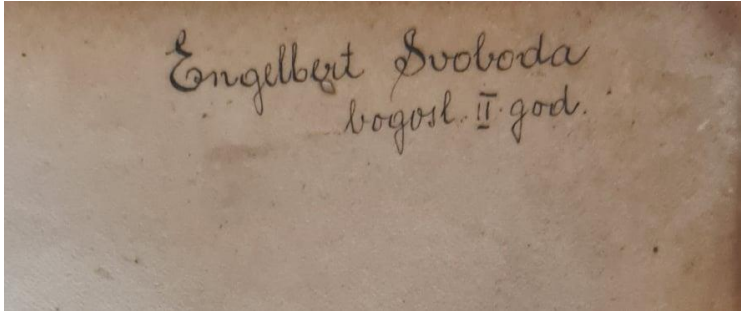 Engelbert Svoboda
bogosl. II. god.